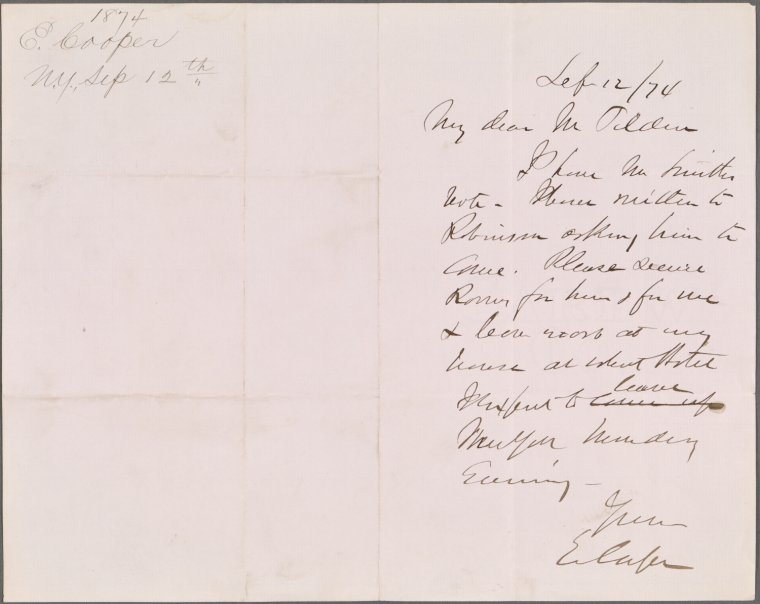 1874
E. Cooper
N.Y., Sep 12th
Sep 12/74
My dear Mr Tilden
I have Mr Smith's
note - I have written to
Robinson asking him to
come. Please secure
Rooms for him & for me
& leave word at my
house at what Hotel
I expect to come up leave
New York Monday
Evening -
Yours
E Cooper